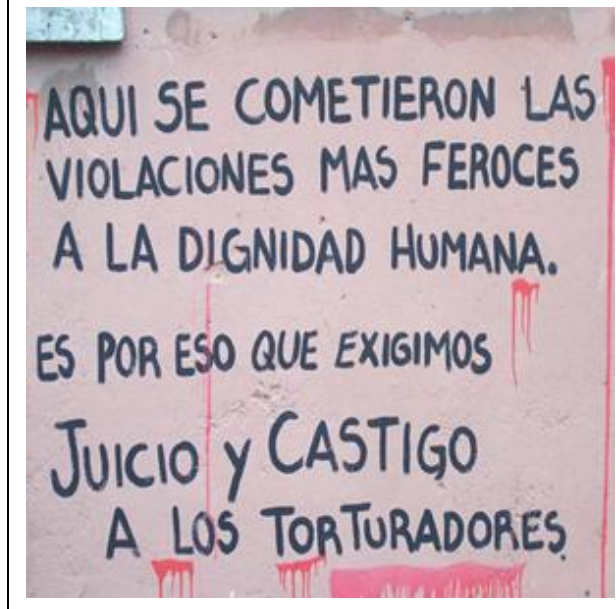 AQUI SE COMETIERON LAS
VIOLACIONES MAS FEROCES
A LA DIGNIDAD HUMANA.
ES POR ESO QUE EXIGIMOS
JUICIO Y CASTIGO
A LOS TORTURADORES